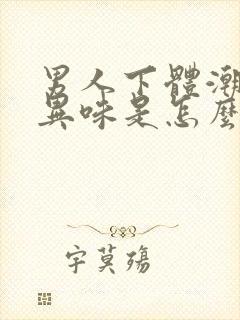 男人下體潮
異味是怎麼
宇莫殤